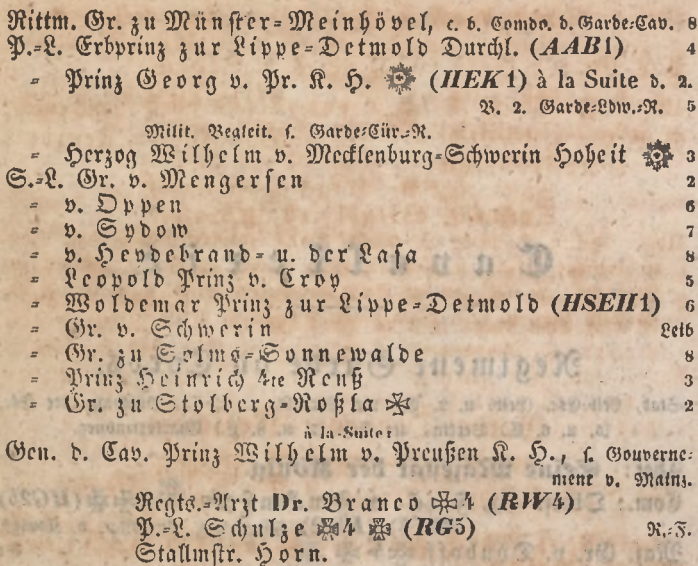 Rittm. Gr. zu Münster=Meinhövel, c. b. Combo. d. Garde=Cav. 8
P.=L. Erbprinz zur Lippe=Detmold Durchl. (AAB1) 4
= Prinz Georg v. Pr. K. H. (HEK1) à la Suite d. 2.
B. 2. Garde=Ldw.=R. 5
Milit. Begleit. s. Garde=Cür.=R.
= Herzog Wilhelm v. Mecklenburg=Schwerin Hoheit 3
S.=L. Gr. v. Mengersen 2
= v. Oppen 6
= v. Sydow 7
= v. Heydebrand= u. der Lasa 8
= Leopold Prinz v. Croy 5
= Woldemar Prinz zur Lippe=Detmold (HSEH1) 6
= Gr. v. Schwerin Leib
= Gr. zu Solms=Sonnewalde 8
= Prinz Heinrich 4te Reuß 3
= Gr. zu Stolberg=Roßla ✠ 2
à la Suite:
Gen. d. Cav. Prinz Wilhelm v. Preußen K. H., s. Gouverne=
ment v. Mainz.
Regts.=Arzt Dr. Branco 4 (RW4)
P.=L. Schulze 4 (RG5) R.=F.
Stallmstr. Horn.